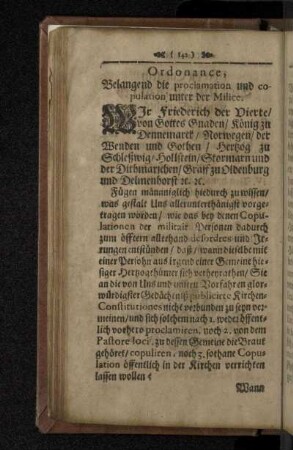 ( 142 )
Ordonance,
Belangend die proclamation und co-
pulation unter der Milice.
WIr Friederich der Vierte/
von Gottes Gnaden/ König zu
Dennemarck/ Norwegen/ der
Wenden und Gothen/ Hertzog zu
Schleßwig/ Hollstein/ Stormarn und
der Dithmarschen/ Graf zu Oldenburg
und Delmenhorst ꝛc. ꝛc.
Fügen männiglich hiedurch zu wissen/
was gestalt Uns allerunterthänigst vorge-
tragen worden/ wie das bey denen Copu-
lationen der militair Personen dadurch
zum öfftern allerhand desordres und Ir-
rungen entstünden/ daß/ wann dieselbe mit
einer Persohn aus irgend einer Gemeine hie-
siger Hertzogthümer sich verheyrathen/ Sie
an die von Uns und unsern Vorfahren glor-
würdigster Gedächtniß publicirte Kirchen-
Constitutiones nicht verbunden zu seyn ver-
meinen/ und sich solchem nach 1. weder öffent-
lich vorhero proclamiren, noch 2. von dem
Pastore loci, zu dessen Gemeine die Braut
gehöret/ copuliren, noch 3. sothane Copu-
lation öffentlich in der Kirchen verrichten
lassen wollen:
Wann